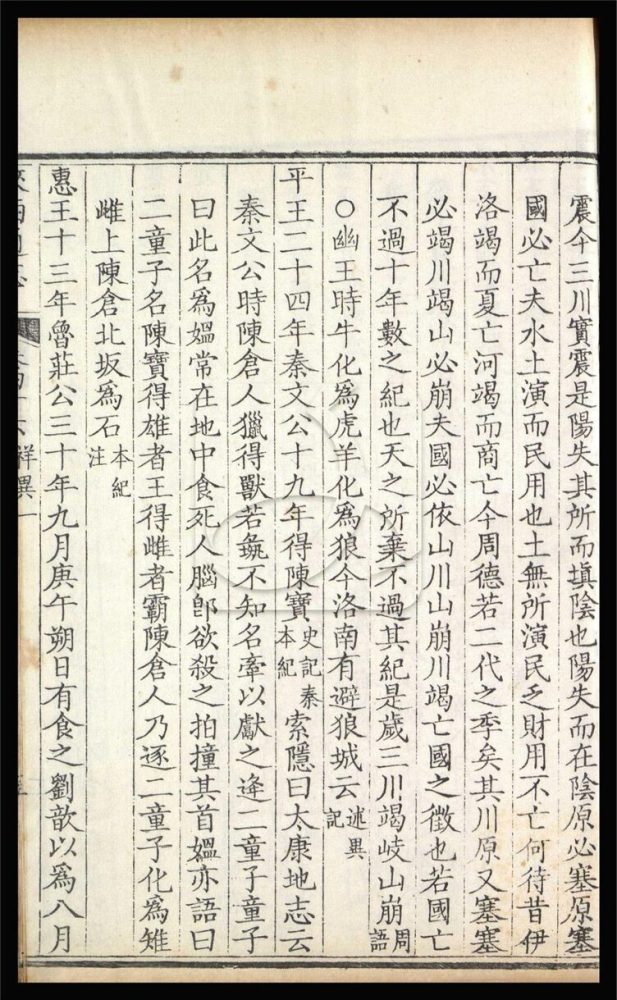 震今三川實震是陽失其所而塡陰也陽失而在陰原必塞原塞
國必亡夫水土演而民用也土無所演民乏財用不亡何待昔伊
洛竭而夏亡河竭而商亡今周德若二代之季矣其川原又塞塞
必竭川竭山必崩夫國必依山川山崩川竭亡國之徵也若國亡
不過十年數之紀也天之所棄不過其紀是歲三川竭岐山崩周語
○幽王時牛化爲虎羊化爲狼今洛南有避狼城云述異記
平王二十四年秦文公十九年得陳寶史記秦本紀索隱曰太康地志云
秦文公時陳倉人獵得獸若彘不知名牽以獻之逢二童子童子
曰此名爲媼常在地中食死人腦卽欲殺之拍撞其首媼亦語曰
二童子名陳寶得雄者王得雌者霸陳倉人乃逐二童子化爲雉
雌上陳倉北坂爲石本紀注
惠王十三年魯莊公三十年九月庚午朔日有食之劉歆以爲八月
祥異一